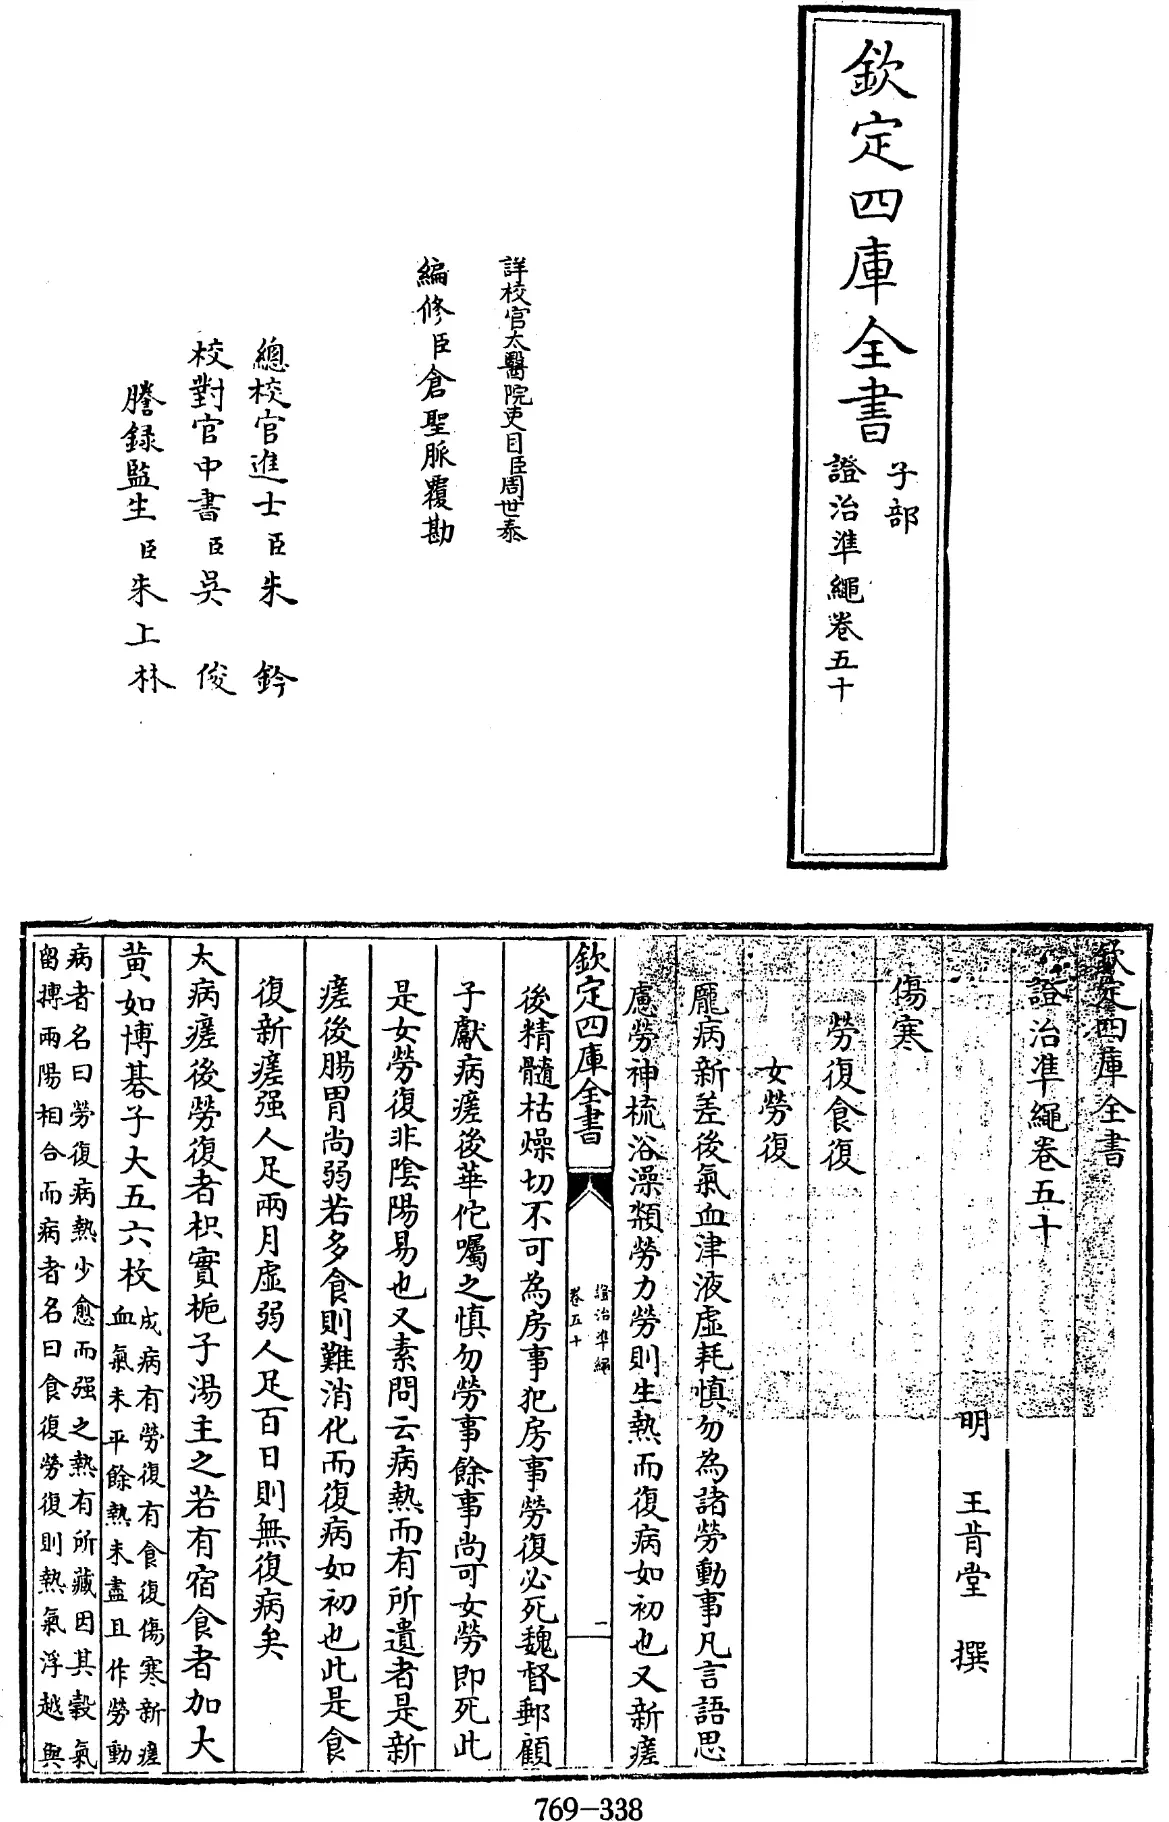 欽定四庫全書
子部
證治準繩卷五十
詳校官太醫院吏目臣周世泰
編修臣倉聖脈覆勘
總校官進士臣朱鈐
校對官中書臣吳俊
謄録監生臣朱上林
欽定四庫全書
證治準繩卷五十
明 王肯堂 撰
傷寒
勞復食復
女勞復
龎病新差後氣血津液虛耗慎勿為諸勞動事凡言語思
慮勞神梳浴澡頮勞力勞則生熱而復病如初也又新瘥
欽定四庫全書
證治準繩
卷五十
一
後精髓枯燥切不可為房事犯房事勞復必死魏督郵顧
子獻病瘥後華佗囑之慎勿勞事餘事尚可女勞即死此
是女勞復非陰陽易也又素問云病熱而有所遺者是新
瘥後腸胃尚弱若多食則難消化而復病如初也此是食
復新瘥强人足兩月虛弱人足百日則無復病矣
大病瘥後勞復者枳實梔子湯主之若有宿食者加大
黄如博碁子大五六枚
成病有勞復有食復傷寒新瘥
血氣未平餘熱未盡且作勞動
病者名曰勞復病熱少愈而强之熱有所藏因其穀氣
留搏兩陽相合而病者名曰食復勞復則熱氣浮越與
769-338